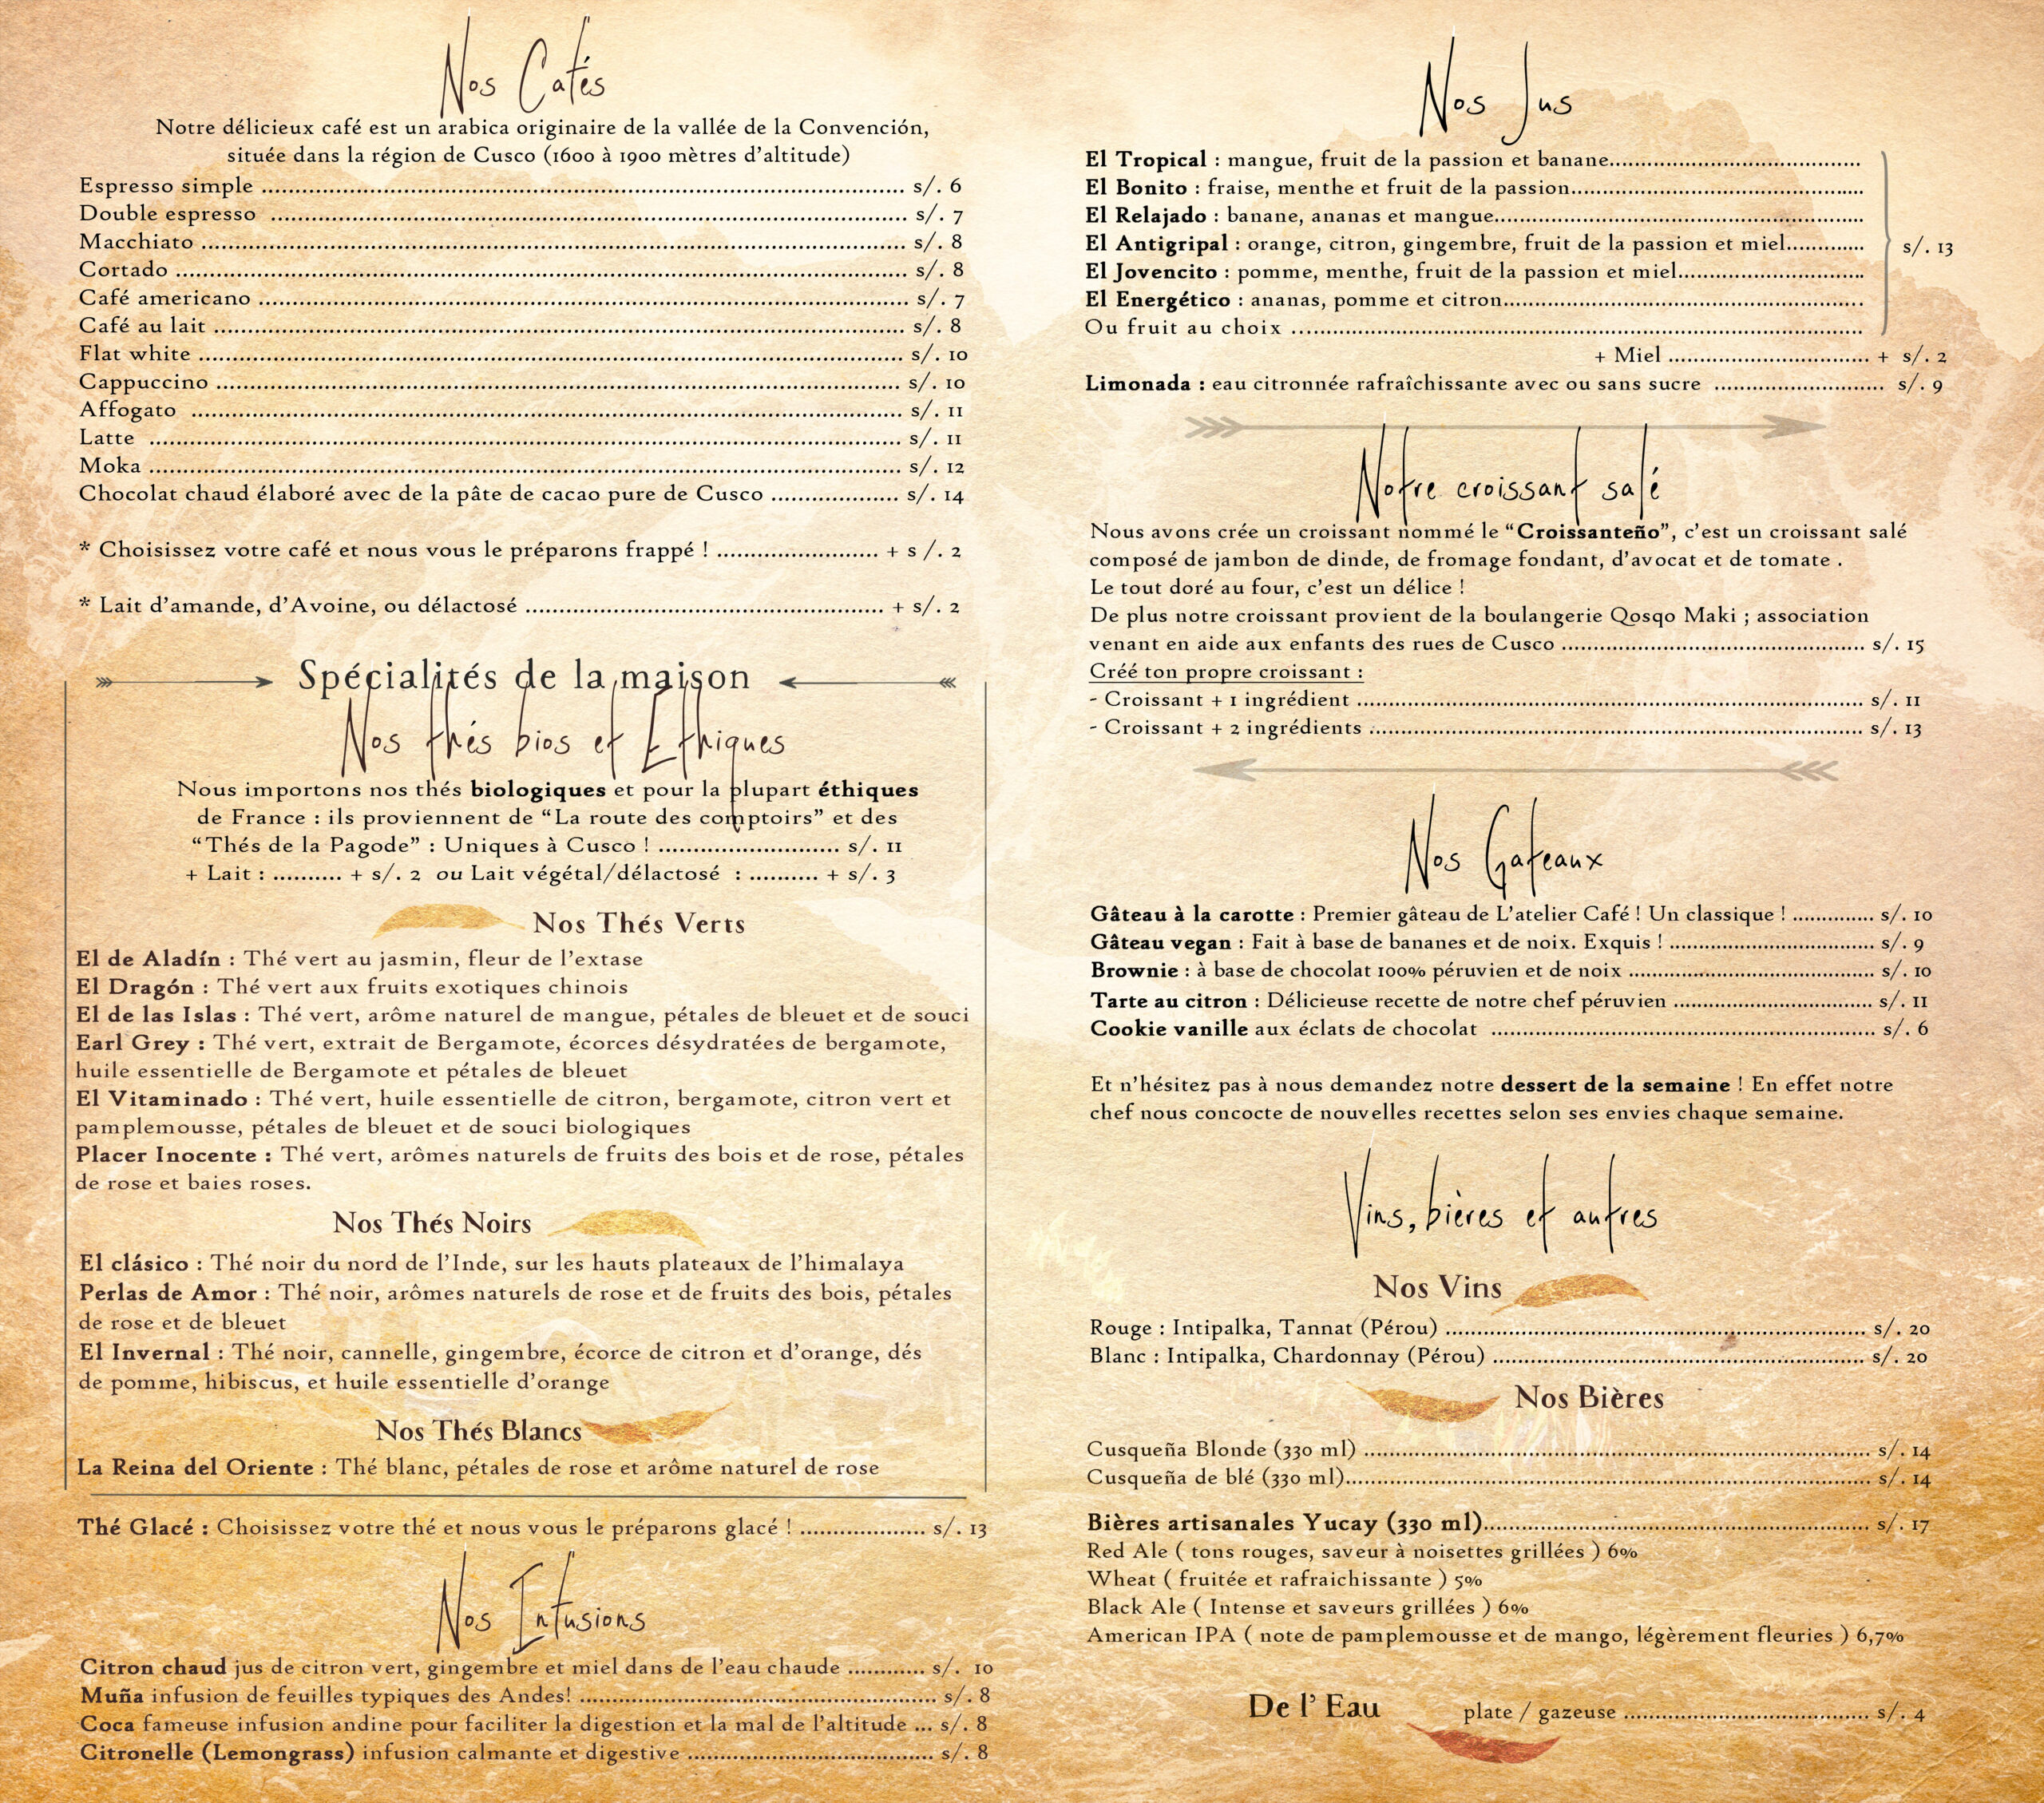 Nos Cafés
Notre délicieux café est un arabica originaire de la vallée de la Convención,
située dans la région de Cusco (1600 à 1900 mètres d’altitude)
Espresso simple ........ s/. 6
Double espresso ........ s/. 7
Macchiato ........ s/. 8
Cortado ........ s/. 8
Café americano ........ s/. 7
Café au lait ........ s/. 8
Flat white ........ s/. 10
Cappuccino ........ s/. 10
Affogato ........ s/. 11
Latte ........ s/. 11
Moka ........ s/. 12
Chocolat chaud élaboré avec de la pâte de cacao pure de Cusco ........ s/. 14
* Choisissez votre café et nous vous le préparons frappé ! ........ + s /. 2
* Lait d’amande, d’Avoine, ou délactosé ........ + s/. 2
Spécialités de la maison
Nos thés bios et Ethiques
Nous importons nos thés biologiques et pour la plupart éthiques
de France : ils proviennent de “La route des comptoirs” et des
“Thés de la Pagode” : Uniques à Cusco ! ........ s/. 11
+ Lait : .......... + s/. 2 ou Lait végétal/délactosé : .......... + s/. 3
Nos Thés Verts
El de Aladín : Thé vert au jasmin, fleur de l’extase
El Dragón : Thé vert aux fruits exotiques chinois
El de las Islas : Thé vert, arôme naturel de mangue, pétales de bleuet et de souci
Earl Grey : Thé vert, extrait de Bergamote, écorces désydratées de bergamote,
huile essentielle de Bergamote et pétales de bleuet
El Vitaminado : Thé vert, huile essentielle de citron, bergamote, citron vert et
pamplemousse, pétales de bleuet et de souci biologiques
Placer Inocente : Thé vert, arômes naturels de fruits des bois et de rose, pétales
de rose et baies roses.
Nos Thés Noirs
El clásico : Thé noir du nord de l’Inde, sur les hauts plateaux de l’himalaya
Perlas de Amor : Thé noir, arômes naturels de rose et de fruits des bois, pétales
de rose et de bleuet
El Invernal : Thé noir, cannelle, gingembre, écorce de citron et d’orange, dés
de pomme, hibiscus, et huile essentielle d’orange
Nos Thés Blancs
La Reina del Oriente : Thé blanc, pétales de rose et arôme naturel de rose
Thé Glacé : Choisissez votre thé et nous vous le préparons glacé ! ........ s/. 13
Nos Infusions
Citron chaud jus de citron vert, gingembre et miel dans de l’eau chaude ........ s/. 10
Muña infusion de feuilles typiques des Andes! ........ s/. 8
Coca fameuse infusion andine pour faciliter la digestion et la mal de l’altitude ... s/. 8
Citronelle (Lemongrass) infusion calmante et digestive ........ s/. 8
Nos Jus
El Tropical : mangue, fruit de la passion et banane........
El Bonito : fraise, menthe et fruit de la passion........
El Relajado : banane, ananas et mangue........
El Antigripal : orange, citron, gingembre, fruit de la passion et miel........ s/. 13
El Jovencito : pomme, menthe, fruit de la passion et miel........
El Energético : ananas, pomme et citron........
Ou fruit au choix ........
+ Miel ........ + s/. 2
Limonada : eau citronnée rafraîchissante avec ou sans sucre ........ s/. 9
Notre croissant salé
Nous avons crée un croissant nommé le “Croissanteño”, c’est un croissant salé
composé de jambon de dinde, de fromage fondant, d’avocat et de tomate .
Le tout doré au four, c’est un délice !
De plus notre croissant provient de la boulangerie Qosqo Maki ; association
venant en aide aux enfants des rues de Cusco ........ s/. 15
Créé ton propre croissant :
- Croissant + 1 ingrédient ........ s/. 11
- Croissant + 2 ingrédients ........ s/. 13
Nos Gateaux
Gâteau à la carotte : Premier gâteau de L’atelier Café ! Un classique ! ........ s/. 10
Gâteau vegan : Fait à base de bananes et de noix. Exquis ! ........ s/. 9
Brownie : à base de chocolat 100% péruvien et de noix ........ s/. 10
Tarte au citron : Délicieuse recette de notre chef péruvien ........ s/. 11
Cookie vanille aux éclats de chocolat ........ s/. 6
Et n’hésitez pas à nous demandez notre dessert de la semaine ! En effet notre
chef nous concocte de nouvelles recettes selon ses envies chaque semaine.
Vins, bières et autres
Nos Vins
Rouge : Intipalka, Tannat (Pérou) ........ s/. 20
Blanc : Intipalka, Chardonnay (Pérou) ........ s/. 20
Nos Bières
Cusqueña Blonde (330 ml) ........ s/. 14
Cusqueña de blé (330 ml)........ s/. 14
Bières artisanales Yucay (330 ml)........ s/. 17
Red Ale ( tons rouges, saveur à noisettes grillées ) 6%
Wheat ( fruitée et rafraichissante ) 5%
Black Ale ( Intense et saveurs grillées ) 6%
American IPA ( note de pamplemousse et de mango, légèrement fleuries ) 6,7%
De l’ Eau plate / gazeuse ........ s/. 4